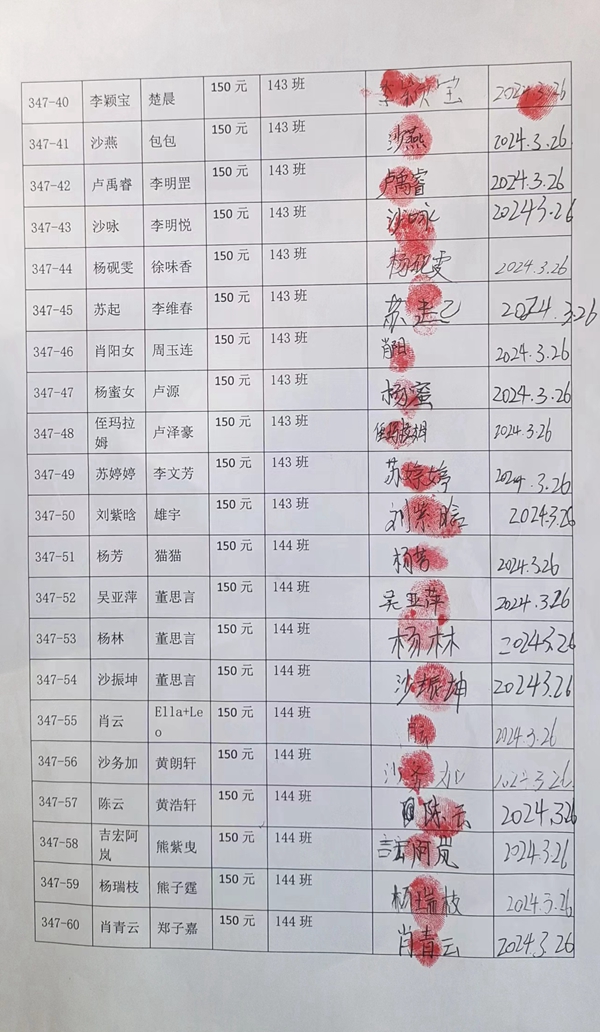 347-40 李颖宝 楚晨 150元 143班 李颖宝 2024.3.26
347-41 沙燕 包包 150元 143班 沙燕 2024.3.26
347-42 卢禹睿 李明罡 150元 143班 卢禹睿 2024.3.26
347-43 沙咏 李明悦 150元 143班 沙咏 2024.3.26
347-44 杨砚雯 徐味香 150元 143班 杨砚雯 2024.3.26
347-45 苏起 李维春 150元 143班 苏起 2024.3.26
347-46 肖阳女 周玉连 150元 143班 肖阳 2024.3.26
347-47 杨蜜女 卢源 150元 143班 杨蜜 2024.3.26
347-48 侄玛拉 卢泽豪 150元 143班 侄玛拉姆 2024.3.26
姆
347-49 苏婷婷 李文芳 150元 143班 苏婷婷 2024.3.26
347-50 刘紫晗 雄宇 150元 143班 刘紫晗 2024.3.26
347-51 杨芳 猫猫 150元 144班 杨芳 2024.3.26
347-52 吴亚萍 董思言 150元 144班 吴亚萍 2024.3.26
347-53 杨林 董思言 150元 144班 杨林 2024.3.26
347-54 沙振坤 董思言 150元 144班 沙振坤 2024.3.26
347-55 肖云 Ella+Le 150元 144班 肖云 2024.3.26
o
347-56 沙务加 黄朗轩 150元 144班 沙务加 2024.3.26
347-57 陈云 黄浩轩 150元 144班 陈云 2024.3.26
347-58 吉宏阿 熊紫曳 150元 144班 阿岚 2024.3.26
岚
347-59 杨瑞枝 熊子霆 150元 144班 杨瑞枝 2024.3.26
347-60 肖青云 郑子嘉 150元 144班 肖青云 2024.3.26